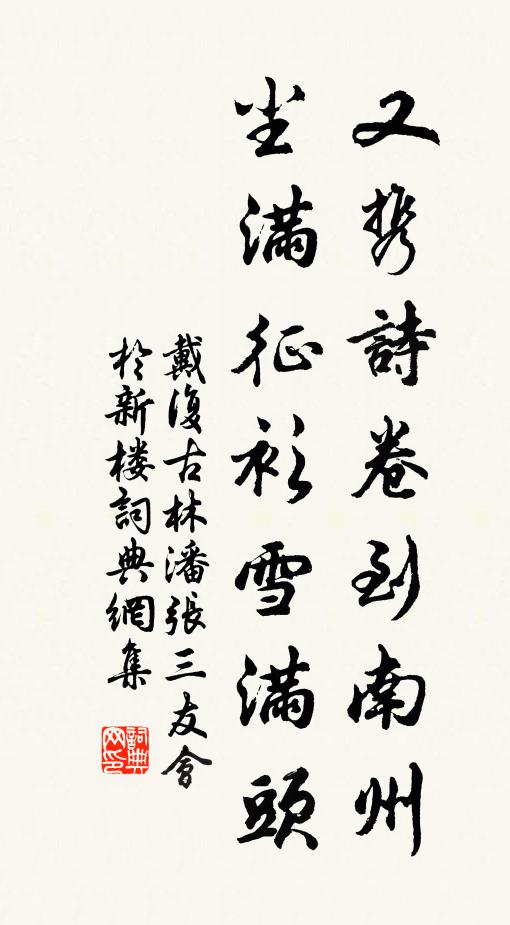 又携詩卷到南州
尘滿征衫雪滿頭
戴復古林潘張三友會
於新楼詞典網集
詞典
网印